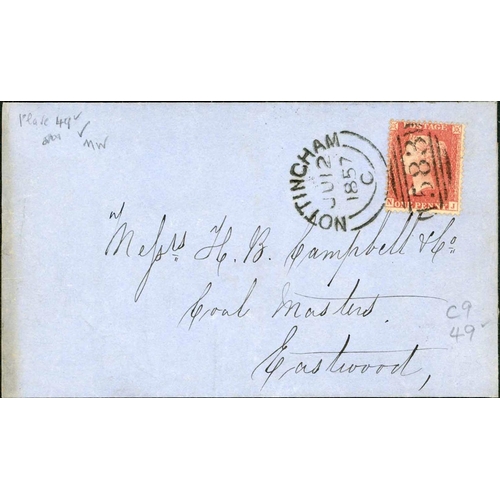 Plate 49
MW
POSTAGE
583
ONE PENNY
N J
NOTTINGHAM
JU 12
1857
C
Messrs H. B. Campbell & Co
Coal Masters.
Eastwood,
C9
49